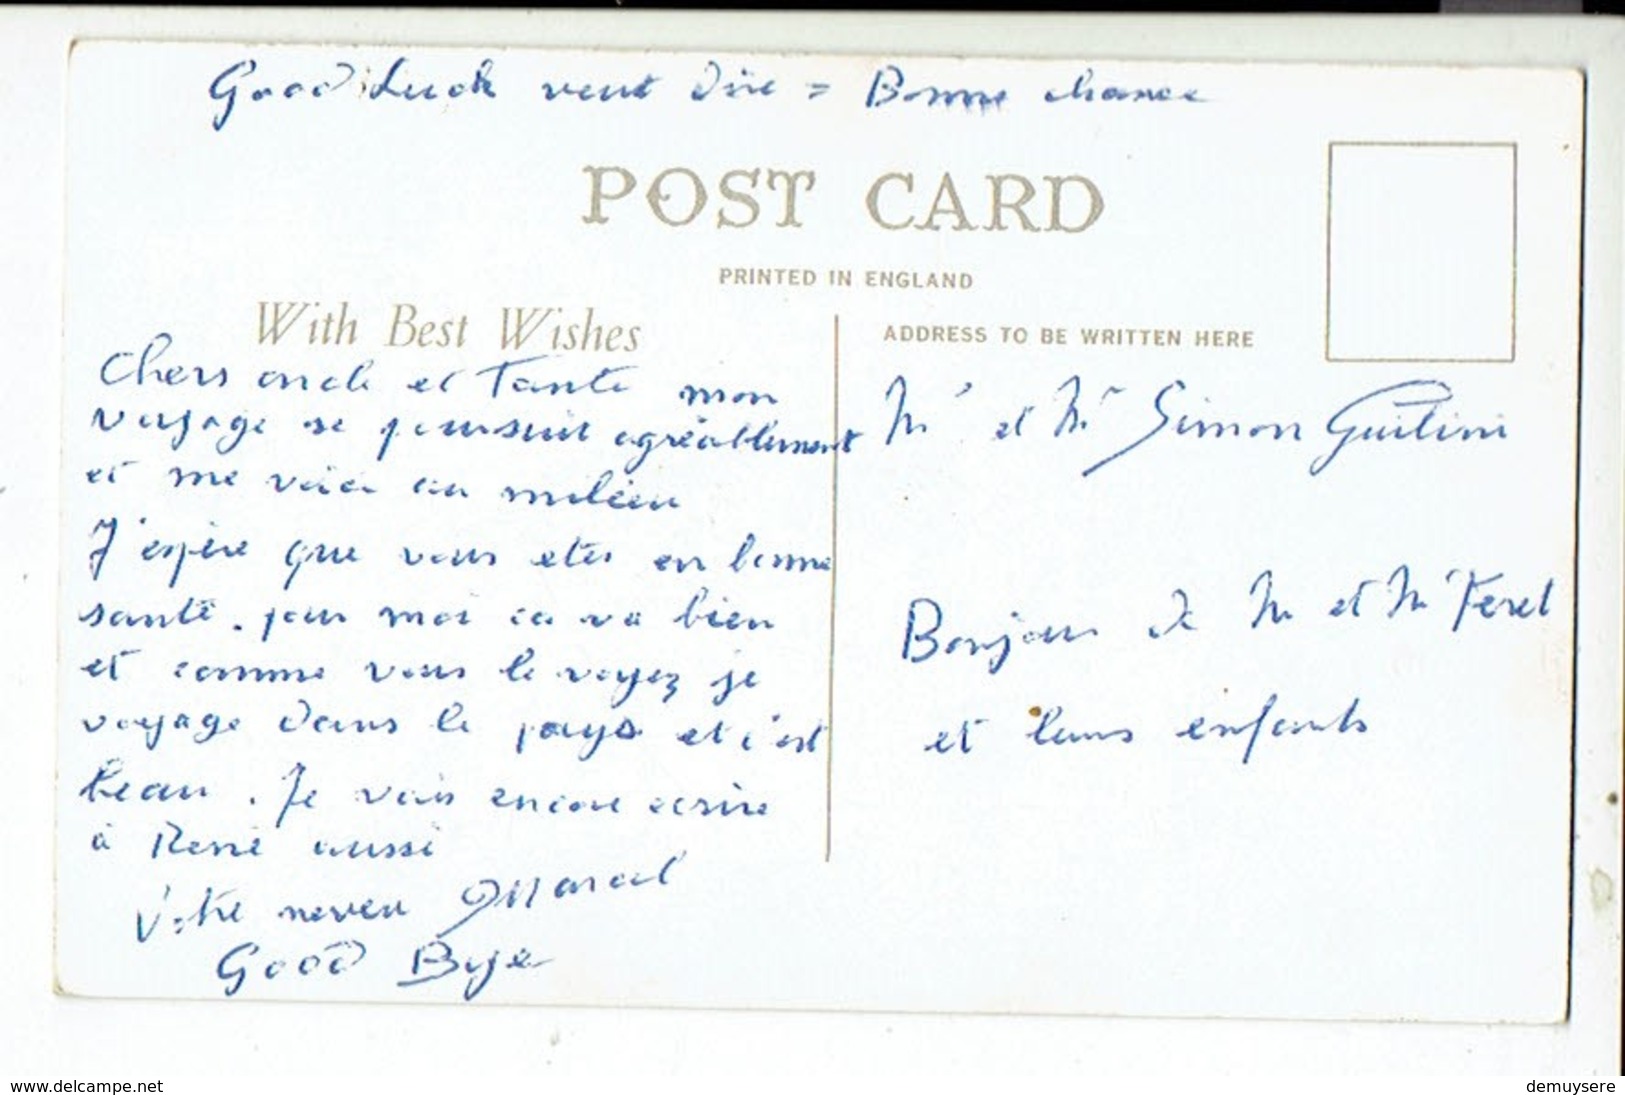 Good Luck veut dire = Bonne chance
POST CARD
PRINTED IN ENGLAND
With Best Wishes
ADDRESS TO BE WRITTEN HERE
Chers oncle et Tante mon
voyage se poursuit agréablement
et me voici au milieu
J'espère que vous etes en bonne
santé. pour moi ca va bien
et comme vous le voyez je
voyage dans le pays et c'est
beau. Je vais encore ecrire
à René aussi
Votre neveu Marcel
Good Bye
Mr et Me Simon
Bonjour de M et M Feret
et leurs enfants
www.delcampe.net
demuysere